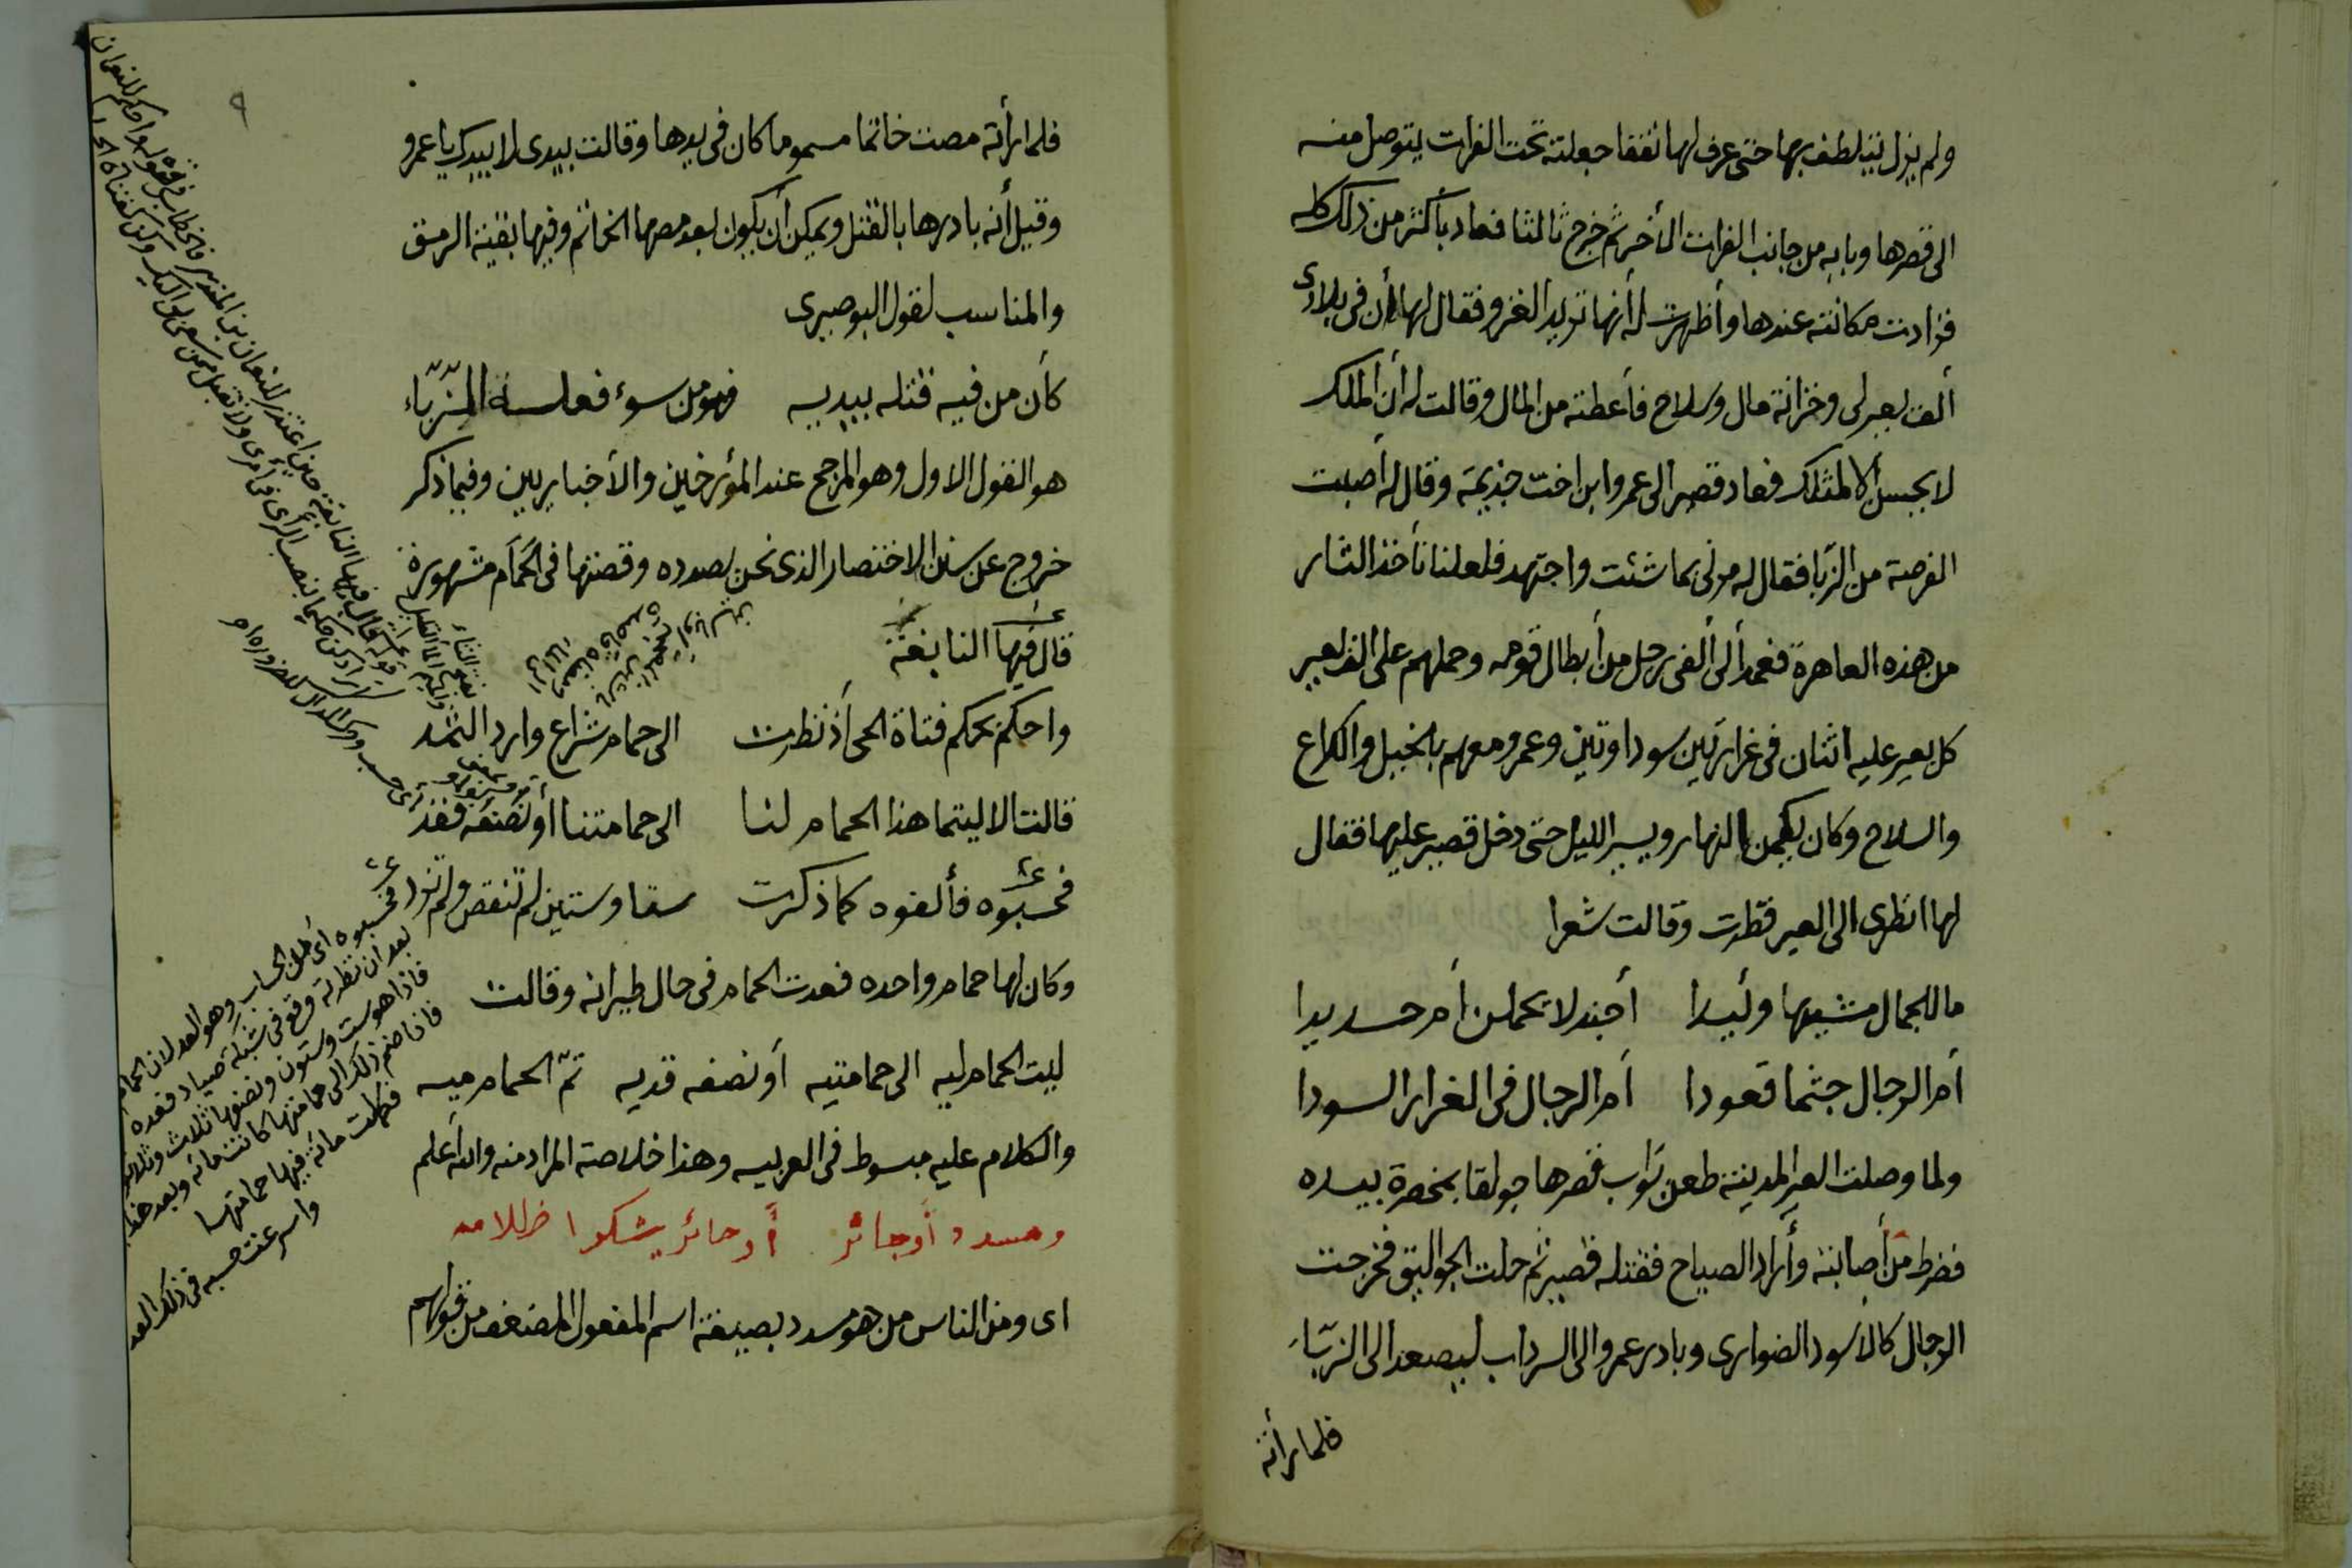 ولم يزل يتلطف بها حتى عرف لها نفقا جعلته تحت الفرات يتوصل منه
الى قصرها وبابه من جانب الفرات الأخر ثم خرج ثالثا فعاد بأكثر من ذلك كله
فزادت مكانته عندها وأظهرت له أنها تريد الغزو فقال لها أن فى بلادى
ألف بعير لى وخزانة مال وسلاح فأعطته من المال وقالت له أن الملك
لا يحسن الا لمثلك فعاد قصير الى عمرو ابن اخت جذيمة وقال له أصبت
الفرصة من الزبا فقال له مرنى بما شئت واجتهد فلعلنا نأخذ الثار
من هذه العاهرة فعمد ألى ألفى رجل من أبطال قومه وحملهم على الف بعير
كل بعير عليه اثنان فى غرارتين سوداوتين وعمرو معهم بالخيل والكراع
والسلاح وكان يكمن النهار ويسير الليل حتى دخل قصير عليها فقال
لها انظرى الى العير فنظرت وقالت شعرا
ما للجمال مشيها وئيدا أجندلا يحملن أم حديدا
أم الرجال جثما قعودا أم الرجال فى الغرار السودا
ولما وصلت العير المدينة طعن بواب قصرها جولقا بمخصرة بيده
فضرط من أصابته وأراد الصياح فقتله قصير ثم حلت الجواليق فخرجت
الرجال كالأسود الضوارى وبادر عمرو الى السرداب ليصعد الى الزبّاء
فلما رأته
٩
فلما رأته مصت خاتما مسموما كان فى يدها وقالت بيدى لا بيدك يا عمرو
وقيل أنه بادرها بالقتل ويمكن أن يكون بعد مصها الخاتم وفيها بقية الرمق
والمناسب لقول البوصيرى
كأن من فيه قتله بيديه فهو من سوء فعله الزّبّاء
هو القول الاول وهو المرجح عند المؤرخين والأخباريين وفيما ذكر
خروج عن سنن الاختصار الذى نحن بصدده وقصتها فى الحمام مشهورة
قال فيها النابغة
واحكم كحكم فتاة الحى أذ نظرت الى حمام شراع وارد الثمد
قالت الا ليتما هذا الحمام لنا الى حمامتنا أو نصفه فقد
فحسبوه فألفوه كما ذكرت ستا وستين لم تنقص ولم تزد
وكان لها حمام واحده فعدت الحمام فى حال طيرانه وقالت
ليت الحمام ليه الى حمامتيه أو نصفه قديه تمّ الحمام ميه
والكلام عليه مبسوط فى العربيه وهذا خلاصة المراد منه والله أعلم
ومسدد أوجائر أوحائر يشكوا ظلامه
اى ومن الناس من هو مسدد بصيغة اسم المفعول المضعف من قولهم
فحسبوه اى من الحساب وهو العد لان الحمام
بعد ان نظرته وقع فى شبكة صياد فعده
فاذا هو ست وستون ونصفها ثلاث وثلاثون
فاذا ضم ذلك الى حمامتها كانت مائة وبعد
فكملت مائة فيها حمامتها
واسرعت حسبه فى ذلك العد